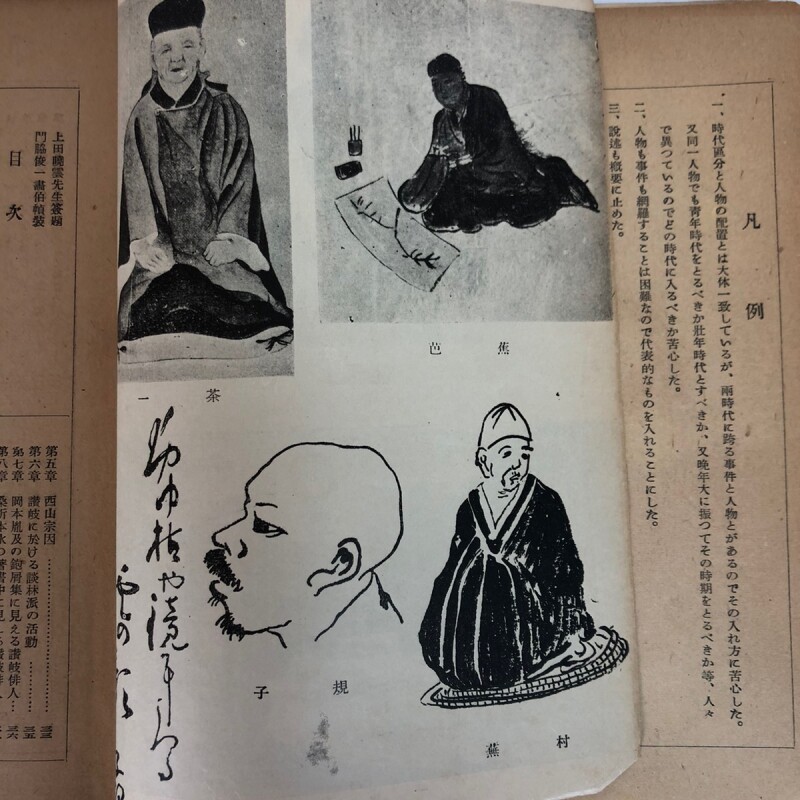 凡例
一、時代區分と人物の配置とは大体一致しているが、兩時代に跨る事件と人物とがあるのでその入れ方に苦心した。
又同一人物でも靑年時代をとるべきか壯年時代とすべきか、又晩年大に振つてその時期をとるべきか等、人々
で異つているのでどの時代に入るべきか苦心した。
二、人物も事件も網羅することは困難なので代表的なものを入れることにした。
三、說述も概要に止めた。
芭蕉
一茶
子規
蕪村
上田
先生簽題
門脇俊一畵伯幀裝
目次
第五章 西山宗因
第六章 讃岐に於ける談林派の活動
第七章 岡本胤及の鉋屑集に見える讃岐俳人
第八章